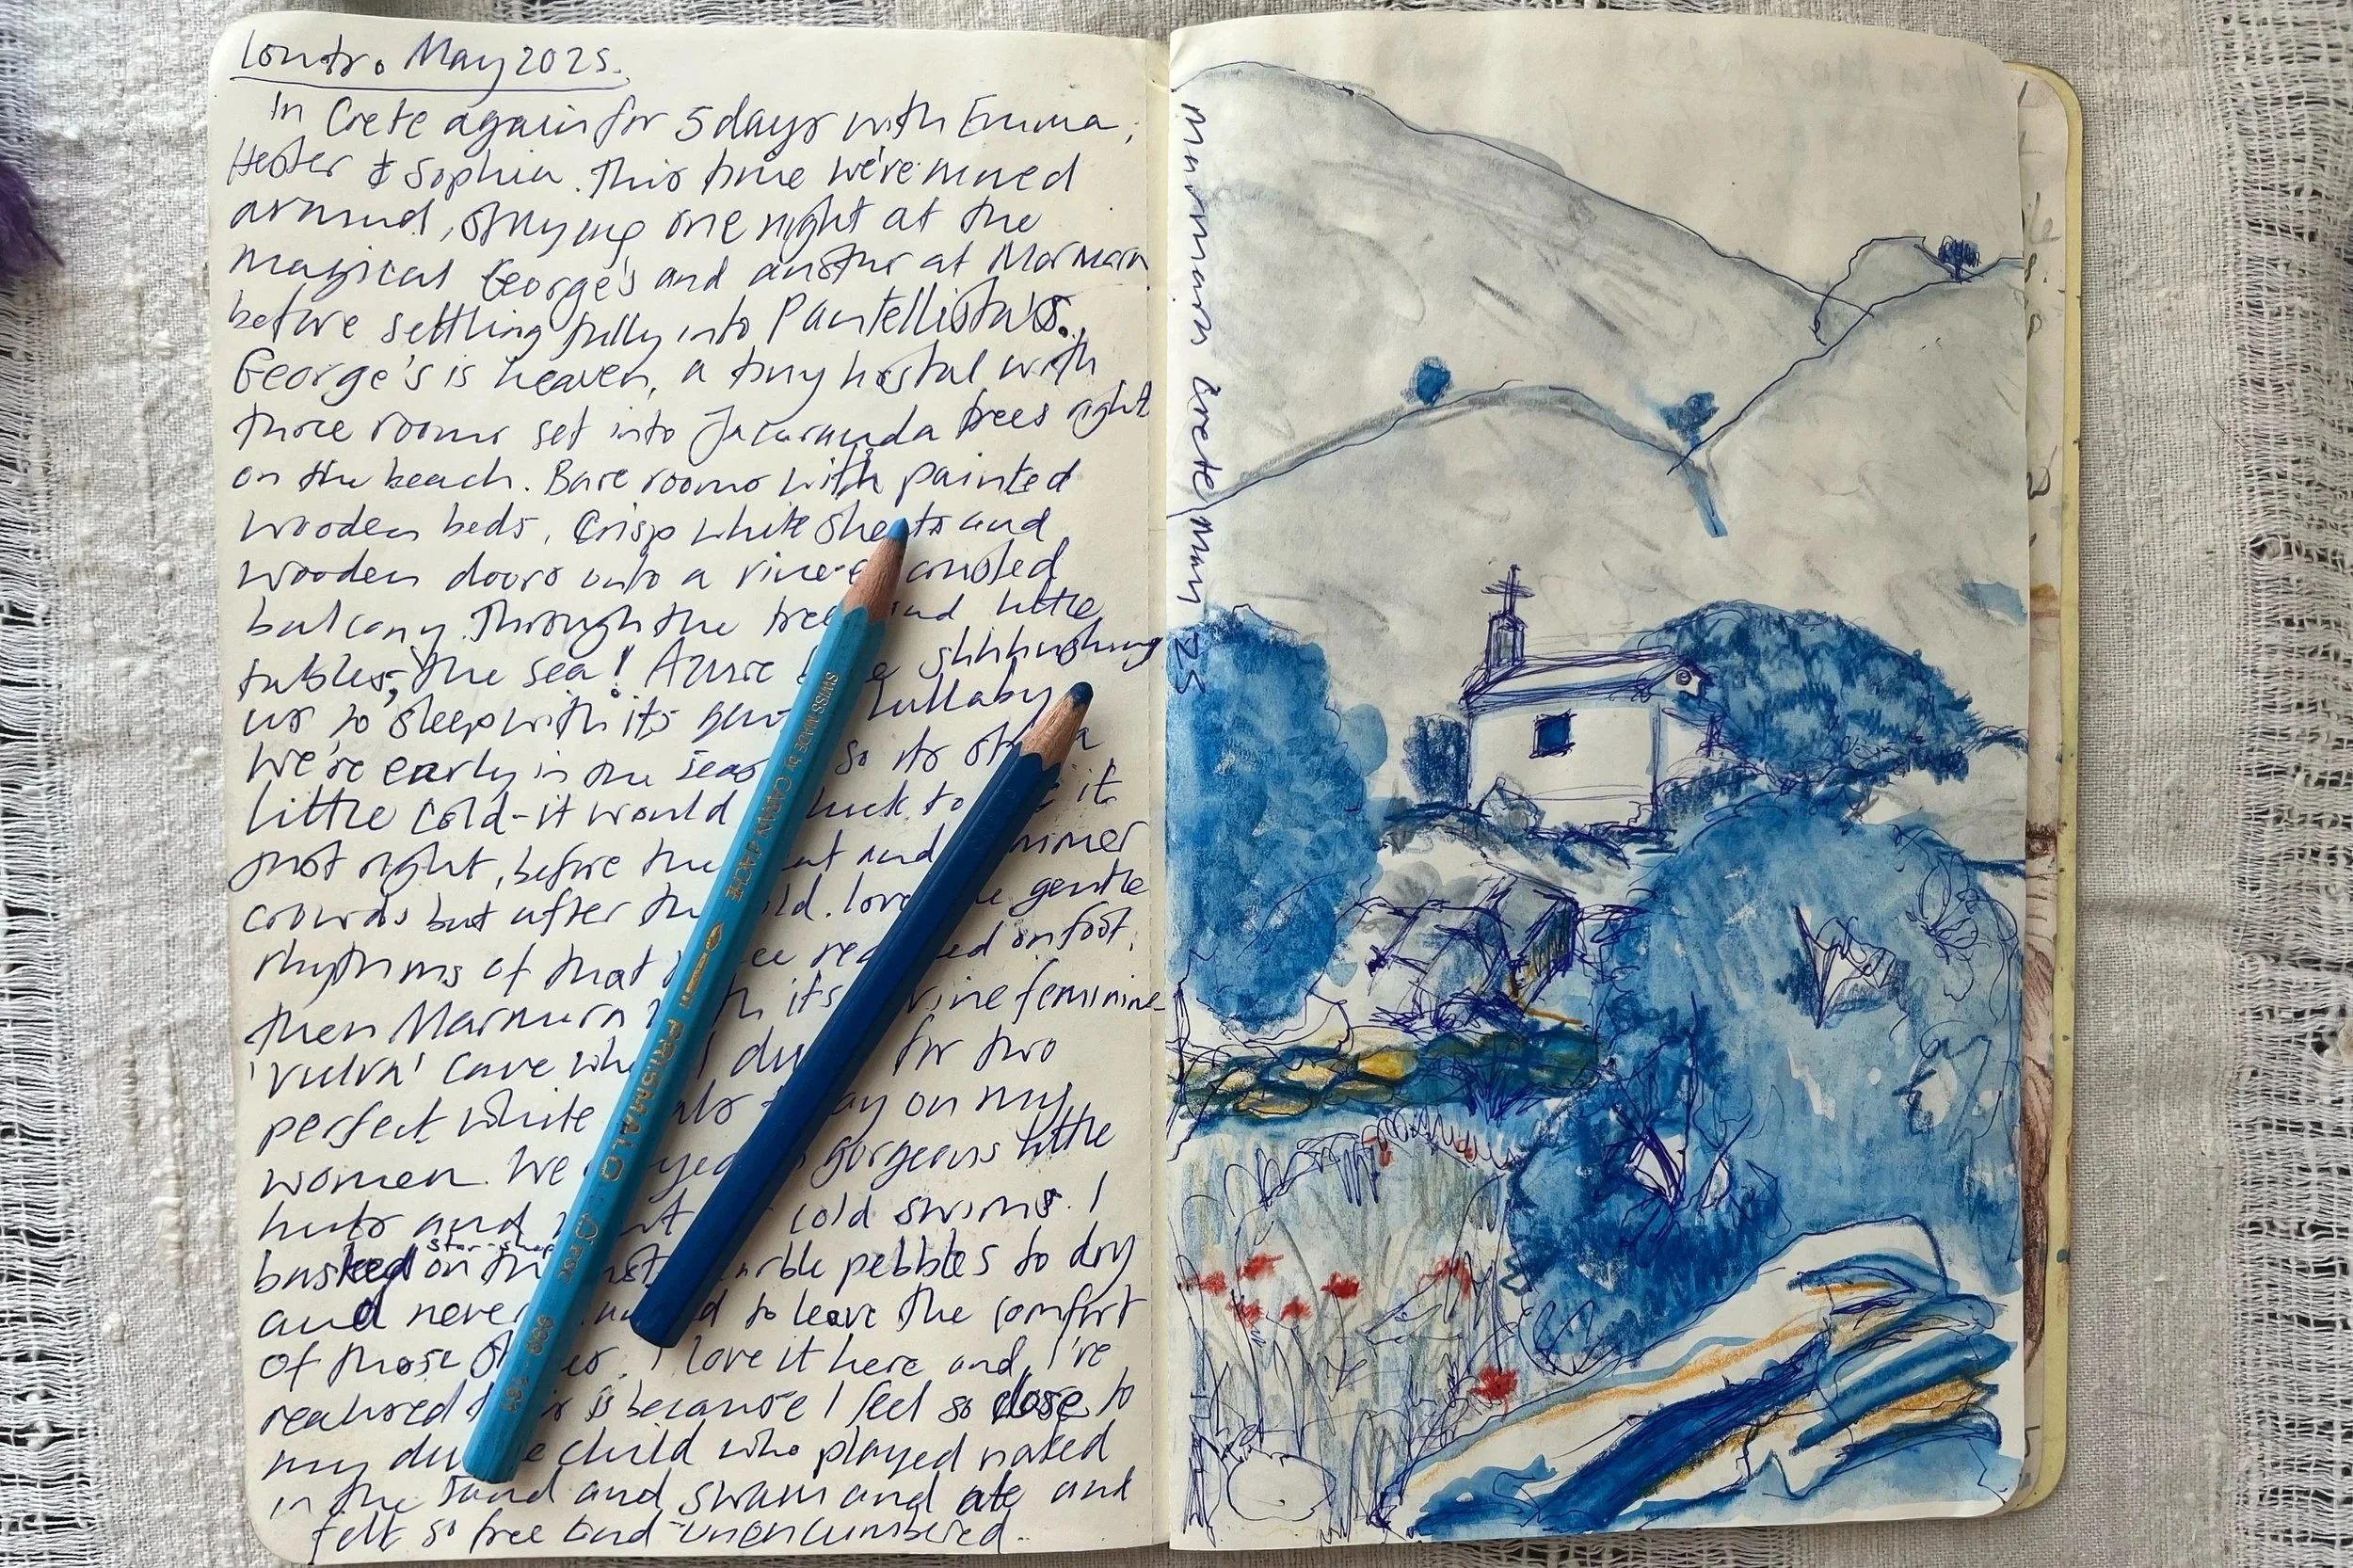 Loutro May 2025.
In Crete again for 5 days with Emma,
Hester & Sophia. This time we've moved
around, staying one night at the
magical George's and another at Marmara
before settling fully into Pantellista's.
George's is heaven, a tiny hostal with
three rooms set into Jacaranda trees right
on the beach. Bare rooms with painted
wooden beds, crisp white sheets and
wooden doors onto a vine-
balcony. Through the trees and little
tables, the sea! Azure shhhushing
us to sleep with its lullaby
We're early in the season so its a
little cold - it would luck to it
just right, before the and
crowds but after the love gentle
rhythms of that on foot,
then Marmara with its divine feminine
'vulva' cave where I for two
perfect white on my
women. We gorgeous little
huts and cold swims. I
basked on the star-shap marble pebbles to dry
and never to leave the comfort
of those I love it here and I've
realised this is because I feel so close to
my child who played naked
in the sand and swam and ate and
felt so free and unencumbered.
marmara crete may 25
SWISS MADE by CARAN d'ACHE PRISMALO
999 . 161